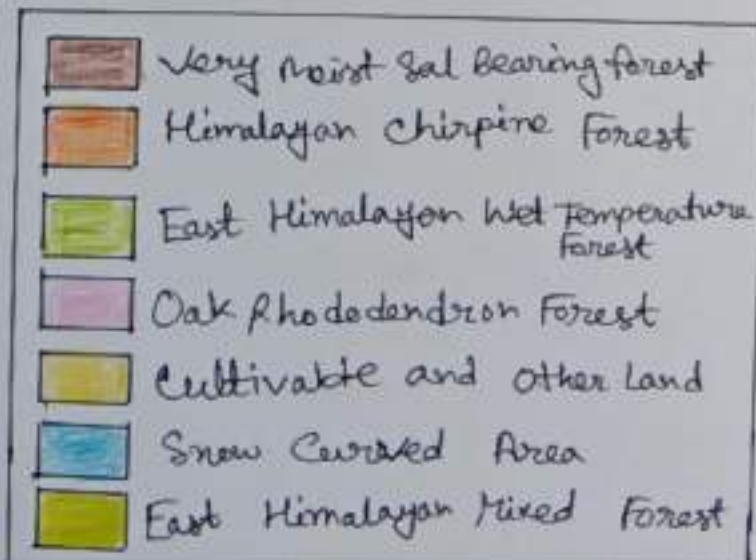 Very Moist Sal Bearing forest
Himalayan Chirpine Forest
East Himalayan Wet Temperature
Forest
Oak Rhododendron Forest
Cultivable and Other Land
Snow Curved Area
East Himalayan Mixed Forest